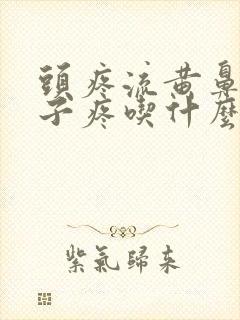 頭疼流黄鼻
子疼喫什麼
紫氣歸來